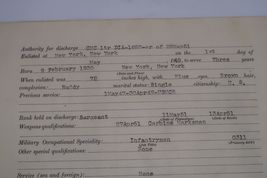 Authority for discharge CMC ltr DIA-1620-er of 28Mar51
Enlisted at New York, New York on the 1st day of
May 1948, to serve Three years
Born 8 February 1930 New York, New York
When enlisted was 72 inches high, with Blue eyes, Brown hair,
complexion; Ruddy marital status: Single citizenship: U. S.
Previous service: 1May47-30Apr48-USMCR
Rank held on discharge: Sergeant 11May51 13Apr51
Weapons qualifications: 27Apr51 Carbine Marksman
Military Occupational Speciality: Infantryman 0311
Other special qualifications: None
Service (sea and foreign): None